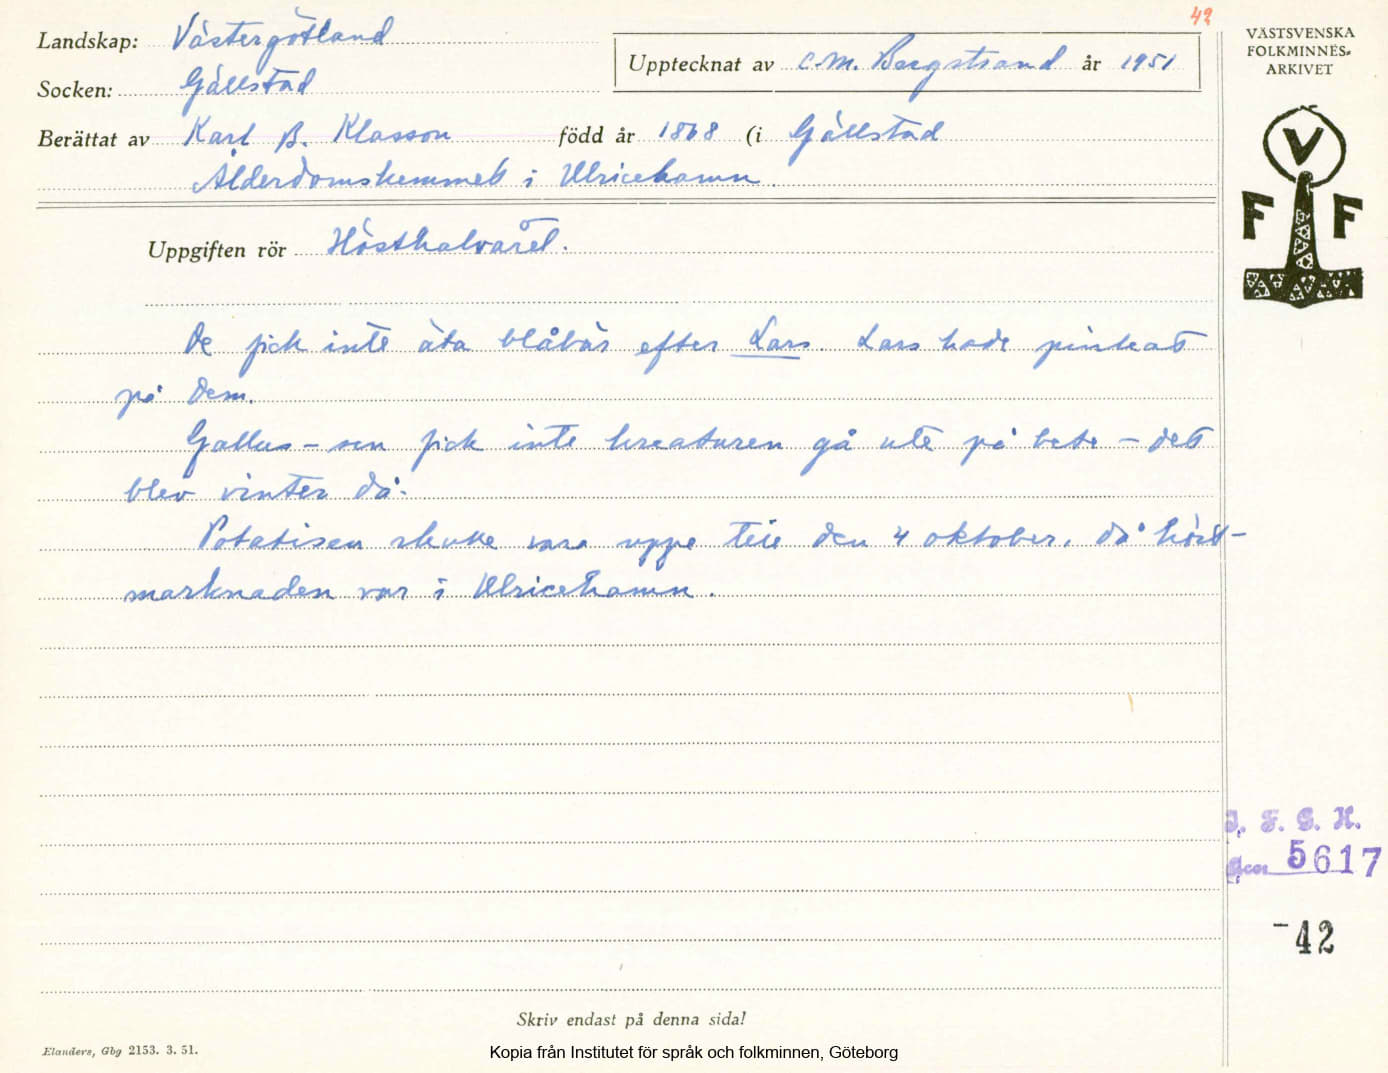 42
Landskap: Västergötland
Socken: Gällstad
Upptecknat av C.M. Bergstrand år 1951
Berättat av Karl B. Klasson född år 1868 (i Gällstad
Ålderdomshemmet i Ulricehamn.
VÄSTSVENSKA
FOLKMINNES-
ARKIVET
V
F F
Uppgiften rör Hösthalvåret.
De fick inte äta blåbär efter Lars. Lars hade pinkat
på dem.
Gallus – sen fick inte kreaturen gå ute på bete – det
blev vinter då.
Potatisen skulle vara uppe till den 4 oktober, då höst-
marknaden var i Ulricehamn.
I. F. G. H.
Acc. 5617
-42
Skriv endast på denna sida!
Elanders, Gbg 2153. 3. 51.
Kopia från Institutet för språk och folkminnen, Göteborg